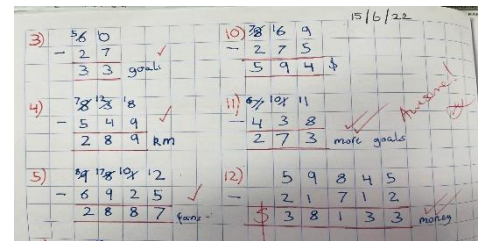 15/6/22
3) 5 6 10
- 2 7
3 3 goals
4) 7 8 12 3 18
- 5 4 9
2 8 9 km
5) 8 9 17 8 10 1 12
- 6 9 2 5
2 8 8 7 fans
10) 7 8 16 9
- 2 7 5
5 9 4 $
11) 6 7 10 1 11
- 4 3 8
2 7 3 more goals
12) 5 9 8 4 5
- 2 1 7 1 2
$ 3 8 1 3 3 money
Awesome!